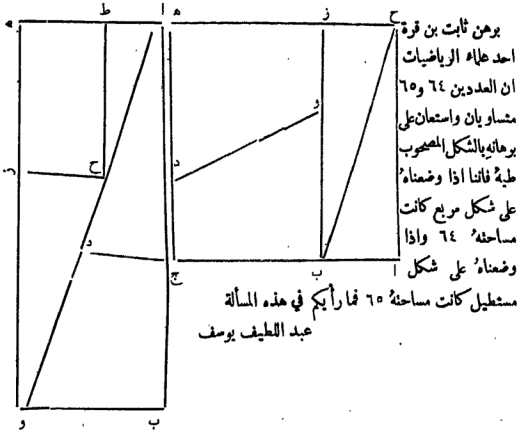 برهن ثابت بن قرة
احد علماء الرياضيات
ان العددين ٦٤ و٦٥
متساويان واستعان على
برهانهِ بالشكل المصحوب
طيهُ فاننا اذا وضعناهُ
على شكل مربع كانت
مساحتهُ ٦٤ واذا
وضعناهُ على شكل
مستطيل كانت مساحتهُ ٦٥ فما رأيكم في هذه المسألة
عبد اللطيف يوسف
ح
ز
ه
و
د
ا
ب
ج
ا
ط
ه
ح
ز
د
ب
و